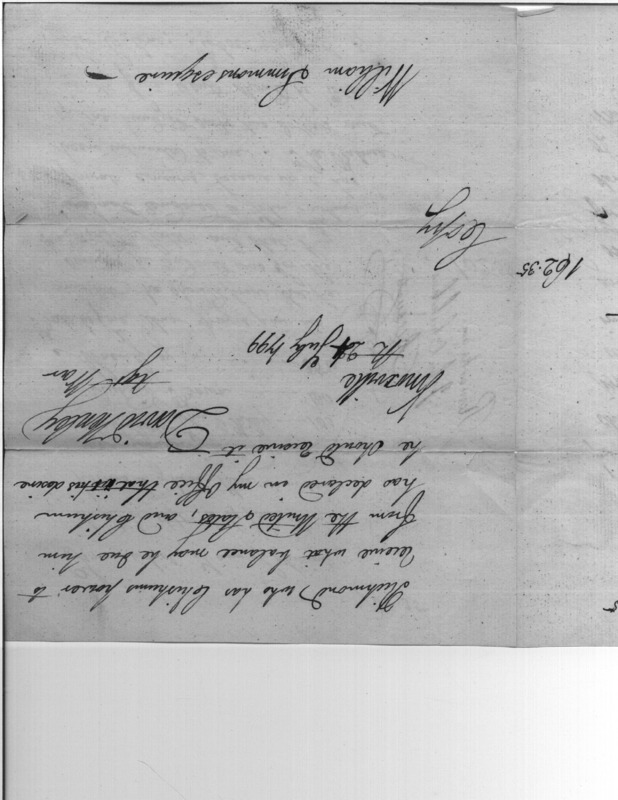 Richmond, who has Chishums power to
receive what balance may be due him
from the United States, and Chishum
has declared in my Office that it is his desire
he should receive it
David Henley
Agt War
Knoxville
24 July 1799
Copy
William Simmons esquire
162.35